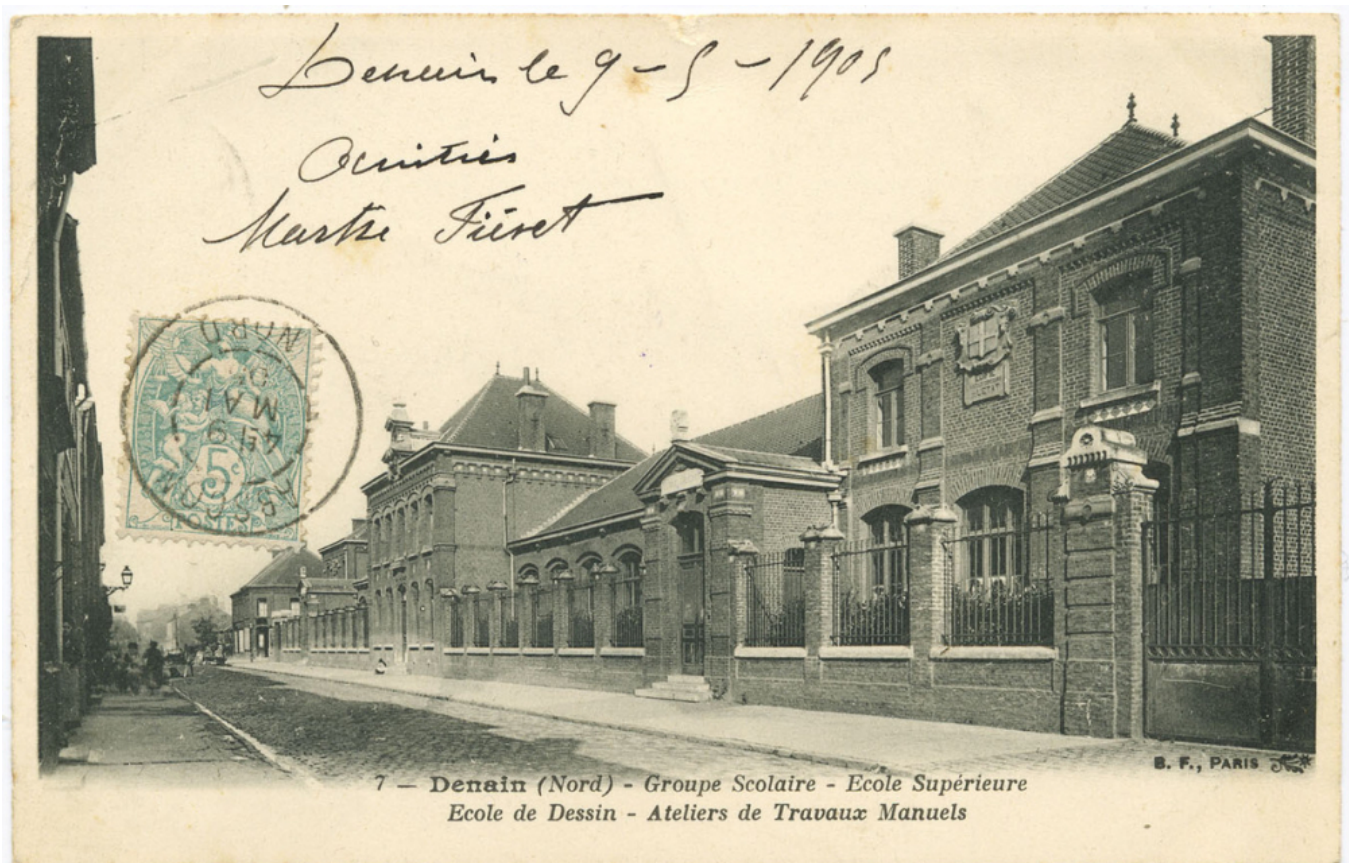 Denain le 9-5-1905
Amitiés
Marthe Fiévet
NORD
MAI
5c
POSTES
B. F., PARIS
7 — Denain (Nord) - Groupe Scolaire - Ecole Supérieure
Ecole de Dessin - Ateliers de Travaux Manuels